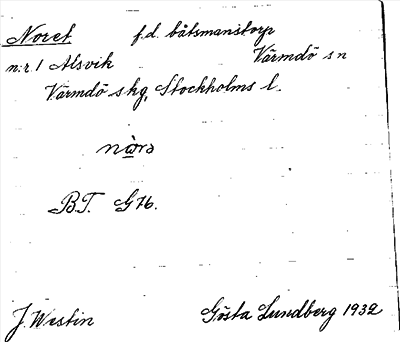 Noret f.d. båtsmanstorp
n:r 1 Alsvik Värmdö sn
Värmdö skg, Stockholms l.
B.T. G76.
J. Westin Gösta Lundberg 1932